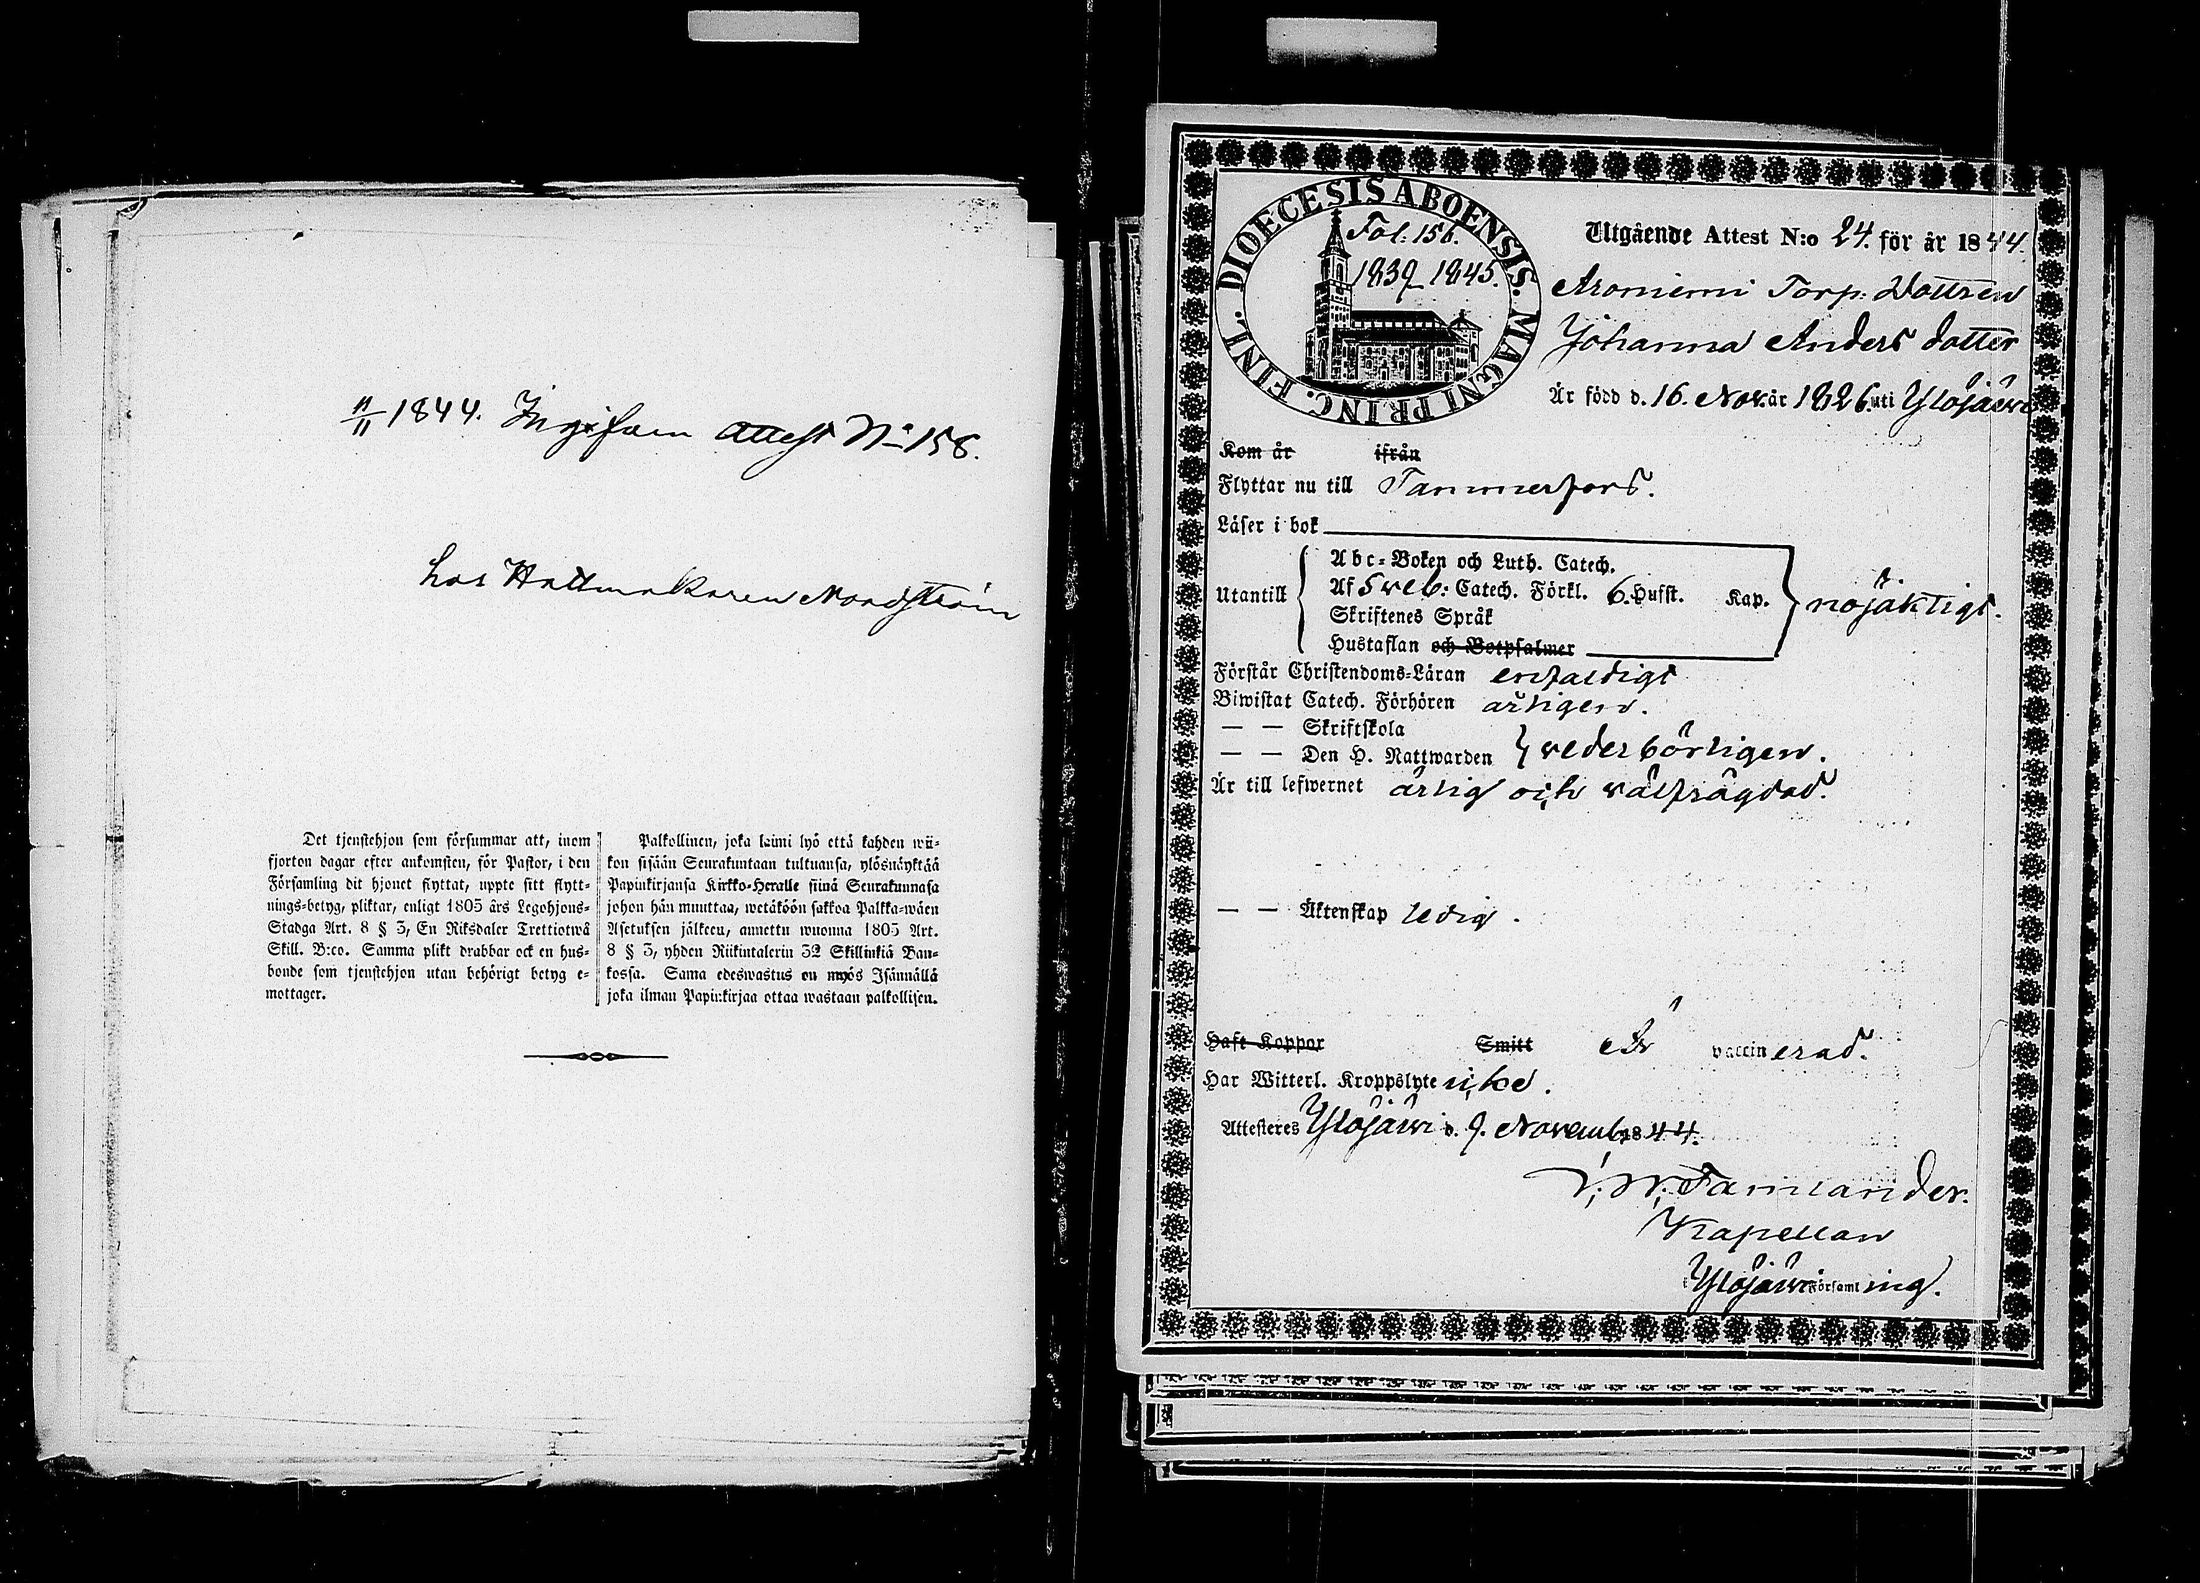 11/11 1844. Ingifven Attest No 158.
hos Hattmakaren Nordström
Det tjenstehjon som försummar att, inom
fjorton dagar efter ankomsten, för Pastor, i den
Församling dit hjonet flyttat, uppte sitt flytt-
nings-betyg, pliktar, enligt 1805 års Legohjons-
Stadga Art. 8 § 3, En Riksdaler Trettiotwå
Skill. B:co. Samma plikt drabbar ock en hus-
bonde som tjenstehjon utan behörigt betyg e-
mottager.
Palkollinen, joka laimi lyö että kahden wii-
kon sisään Seurakuntaan tultuansa, ylösnäyttää
Papinkirjansa Kirkko-Herralle siinä Seurakunnasa
johon hän muuttaa, wetäköön sakkoa Palkka-wäen
Asetuksen jälkeen, annettu wuonna 1805 Art.
8 § 3, yhden Riikintalerin 32 Skillinkiä Ban-
kossa. Sama edeswastus on myös Isännällä
joka ilman Papinkirjaa ottaa wastaan palkollisen.
DIOECESIS ABOENSIS. MAGNI PRINC. FINL.
Fol: 156.
1839–1845.
Utgående Attest N:o 24. för år 1844.
Aroniemi Torp. Dottren
Johanna Anders dotter
Är född d. 16. Nov. år 1826. uti Ylöjärvi
Kom år ifrån
Flyttar nu till Tammerfors.
Läser i bok
Utantill
Abc-Boken och Luth. Catech.
Af Sveb: Catech. Förkl. 6. Hufst. Kap.
Skriftenes Språk
Hustaflan och Botpsalmer
nöjaktigt.
Förstår Christendoms-Läran enfaldigt
Biwistat Catech. Förhören årligen.
— — Skriftskola
— — Den H. Nattwarden } vederbörligen.
Är till lefwernet ärlig och välfrägdad.
— — Äktenskap ledig.
Haft Koppor Smitt Är vaccinerad.
Har Witterl. Kroppslyte icke.
Attesteres Ylöjärvi d. 9. Novemb. 1844.
Kapellan
i Ylöjärvi Församling.